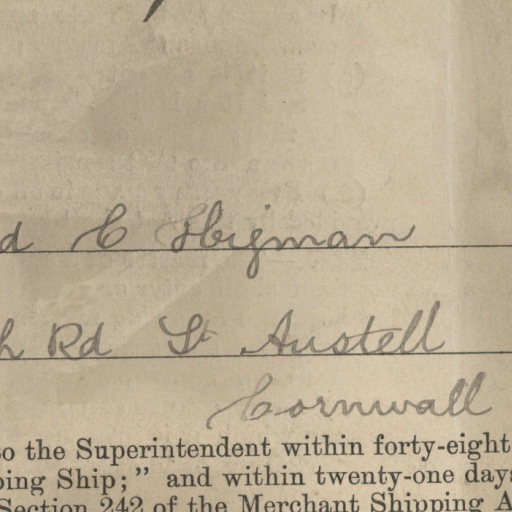 d C Higman
h Rd St Austell
Cornwall
o the Superintendent within forty-eight
ping Ship;" and within twenty-one days
Section 242 of the Merchant Shipping A